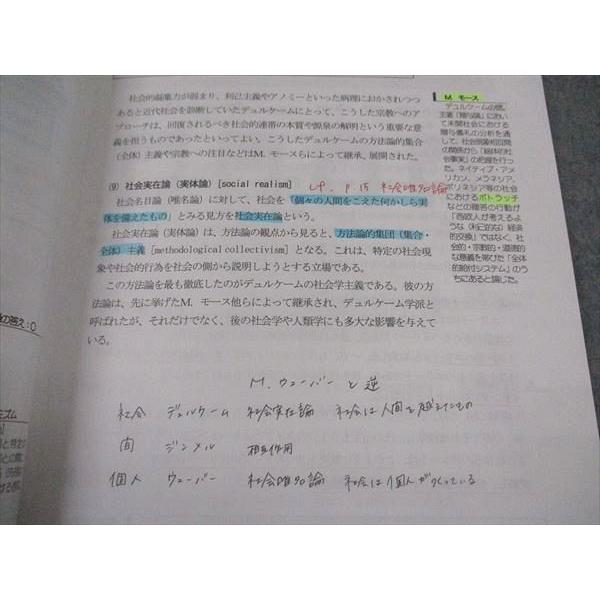 社会的凝集力が弱まり、利己主義やアノミーといった病理におかされつつ
あると近代社会を診断していたデュルケームにとって、こうした宗教へのア
プローチは、回復されるべき社会的連帯の本質や源泉の解明という重要な意
義を担うものであったといってよい。こうしたデュルケームの方法論的集合
(全体)主義や宗教への注目などはM. モースらによって継承、展開された。
(9) 社会実在論(実体論)[social realism]
cf. P. 15 社会唯名論
社会名目論(唯名論)に対して、社会を「個々の人間をこえた何かしら実
体を備えたもの」とみる見方を社会実在論という。
社会実在論(実体論)は、方法論の観点から見ると、方法論的集団(集合・
全体)主義 [methodological collectivism] となる。これは、特定の社会現
象や社会的行為を社会の側から説明しようとする立場である。
この方法論を最も徹底したのがデュルケームの社会学主義である。彼の方
法論は、先に挙げたM. モース他らによって継承され、デュルケーム学派と
呼ばれたが、それだけでなく、後の社会学や人類学にも多大な影響を与えて
いる。
M. ウェーバーと逆
社会 デュルケーム 社会実在論 社会は人間を超えたもの
間 ジンメル 相互作用
個人 ウェーバー 社会唯名論 社会は個人がつくっている
M. モース
デュルケームの甥。
主著『贈与論』におい
て未開社会における
贈与儀礼の分析を通
して、社会現象相互間
の関係から「全体的社
会事実」の把握を行っ
た。ネイティブ・アメ
リカン、メラネシア、
ポリネシア等の社会
におけるポトラッチ
などの贈答の行動が
「西欧人が考えるよ
うな(利己的な)経済
的交換」ではなく、社
会的・宗教的・道徳的
な意義を帯びた「全体
的給付システム」のう
ちにあると論じた。
の答え:○